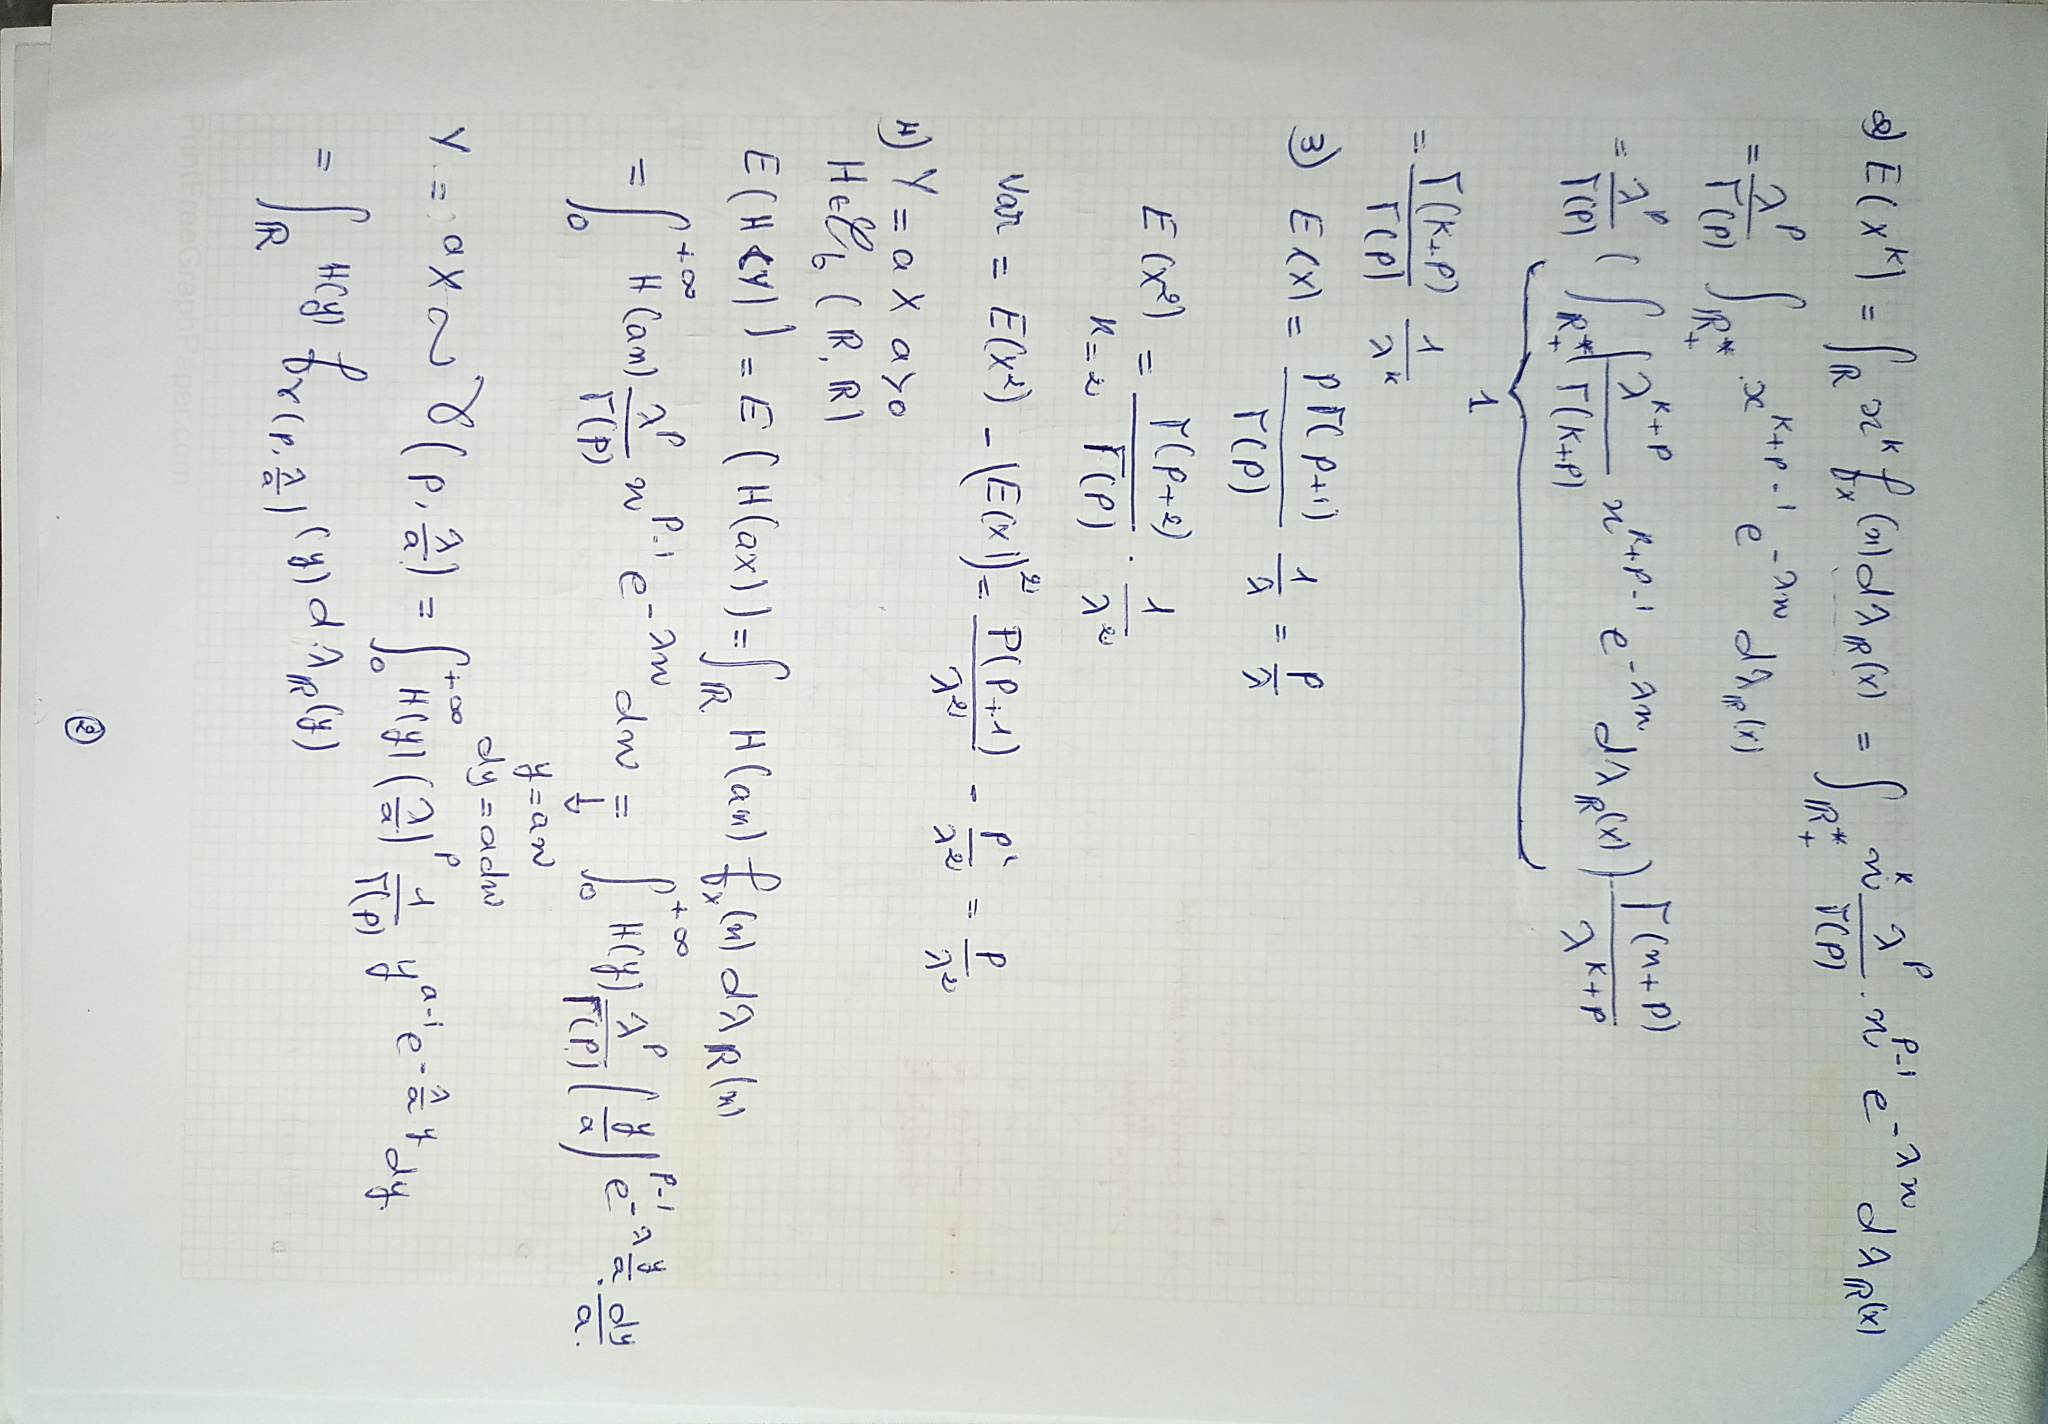 2) E(X^k) = ∫_ℝ x^k f_X(x) dλ_ℝ(x) = ∫_{ℝ*+} x^k λ^p/Γ(p) . x^{p-1} e^{-λx} dλ_ℝ(x)
= λ^p/Γ(p) ∫_{ℝ*+} x^{k+p-1} e^{-λx} dλ_ℝ(x)
= λ^p/Γ(p) ( ∫_{ℝ*+} λ^{k+p}/Γ(k+p) x^{k+p-1} e^{-λx} dλ_ℝ(x) ) Γ(n+p)/λ^{k+p}
1
= Γ(k+p)/Γ(p) 1/λ^k
3) E(X) = pΓ(p+1)/Γ(p) 1/λ = p/λ
E(X²) = Γ(p+2)/Γ(p) . 1/λ²
k=2
Var = E(X²) - (E(X))² = P(P+1)/λ² - p²/λ² = p/λ²
4) Y = aX a>0
H∈𝒞_b(ℝ, ℝ)
E(H(Y)) = E(H(aX)) = ∫_ℝ H(ax) f_X(x) dλ_ℝ(x)
= ∫_0^{+∞} H(ax) λ^p/Γ(p) x^{p-1} e^{-λx} dx = ∫_0^{+∞} H(y) λ^p/Γ(p) (y/a)^{p-1} e^{-λ y/a} . dy/a.
↓
y=ax
dy=adx
Y = aX ~ γ(p, λ/a) = ∫_0^{+∞} H(y) (λ/a)^p 1/Γ(p) y^{a-1} e^{-λ/a y} dy.
= ∫_ℝ H(y) f_{γ(p, λ/a)}(y) dλ_ℝ(y)
PrintFreeGraphPaper.com
②